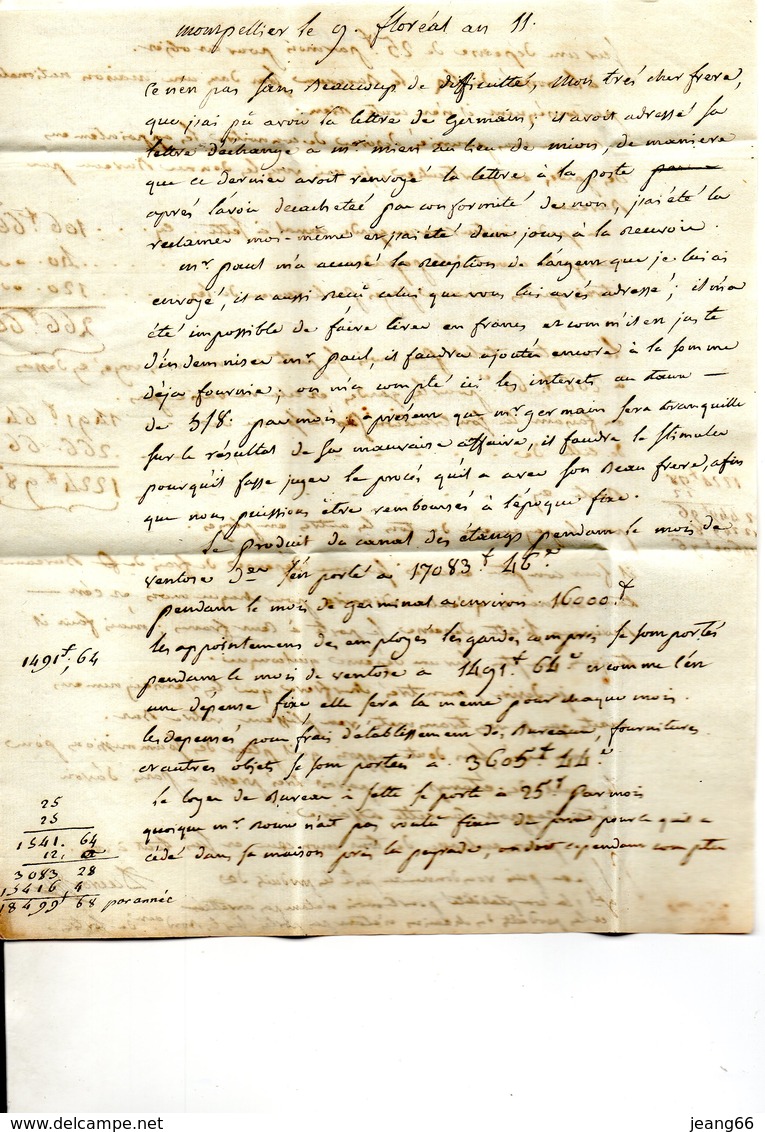 montpellier le 9. floréal an 11.
ce n'en pas sans Beaucoup de difficulté Mon trés cher frere,
que j'ai pû avoir la lettre de Germain, il avoit adressé sa
lettre déchange a mr. miens au lieu de mions, de maniere
que ce dernier avoit renvoyé la lettre à la poste
aprés l'avoir decachetéé par conformité de nom, j'ai été la
reclamer moi-même et j'ai été deux jours à la recevoir.
mr. paul m'a accusé la reception de l'argent que je lui ai
envoyé, il a aussi reçu celui que vous lui avés adressé; il m'a
été impossible de faire tirer en francs et comm'il en juste
d'indemniser mr. paul, il faudra ajouter encore à la somme
déja fournie; on m'a compté ici les interets au taux —
de 5/8. par mois; apresent que mr. germain sera tranquille
sur le résultat de sa mauvaise affaire, il faudra le stimuler
pourqu'il fasse juger le procés qu'il a avec son Beau frere, afin
que nous puissions être remboursés à l'époque fixe.
Le Produit du canal des étangs pendant le mois de
ventose s'en porté a 17083 46
pendant le mois de germinal a environ 16000.
les appointemens des employés les gardes compris se sont portés
pendant le mois de ventose a 1491. 64 et comme c'en
une dépense fixe elle sera la meme pour chaque mois.
les depenses pour frais d'établissement des Bureaux, fournitures
et autres objets se sont portées à 3605 44
Le loyer de Bureau à sette se porte à 25 Par mois
quoique mr. n'ait pas voulu fixer de prix pour ce qu'il a
cédé dans sa maison prés la peyrade, on doit cependant compter
1491, 64
25
25
1541. 64
12,
3083 28
15416, 4
18499 68 par année
106 66
40.
120.
266 66
1491 64
266. 66
1224 98
jeang66